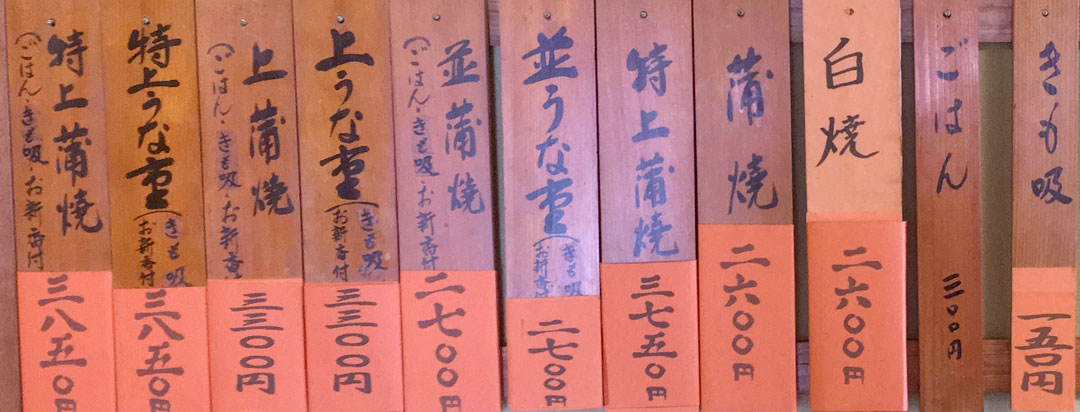 きも吸
一五〇円
ごはん
三〇〇円
白焼
二六〇〇円
蒲焼
二六〇〇円
特上蒲焼
三七五〇円
並うな重
(きも吸
お新香付
二七〇〇円
並蒲焼
(ごはん・きも吸・お新香付
二七〇〇円
上うな重
(きも吸
お新香付
三三〇〇円
上蒲焼
(ごはん・きも吸・お新香
三三〇〇円
特上うな重
(きも吸
お新香付
三八五〇円
特上蒲焼
(ごはん・きも吸・お新香付
三八五〇円